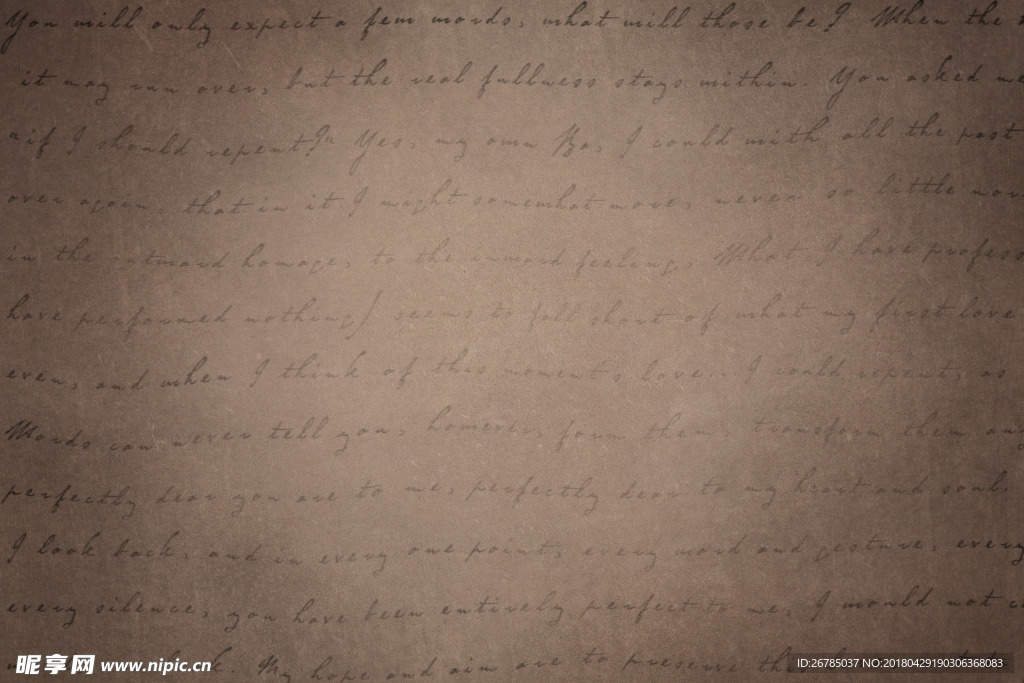 You will only expect a few words, what will those be? When the
it may run over, but the real fullness stays within. You asked me
"if I should repent?" Yes, my own Ba, I could with all the past
over again, that in it I might somewhat more, never so little mor
in the outward homage, to the inward feeling, What I have profess
have performed nothing) seems to fall short of what my first love
even, and when I think of this moment's love.. I could repent, as
Words can never tell you, however, form them, transform them any
perfectly dear you are to me, perfectly dear to my heart and soul.
I look back, and in every one point, every word and gesture, every
every silence, you have been entirely perfect to me, I would not c
My hope and aim are to preserve
昵享网 www.nipic.cn
ID:26785037 NO:20180429190306368083